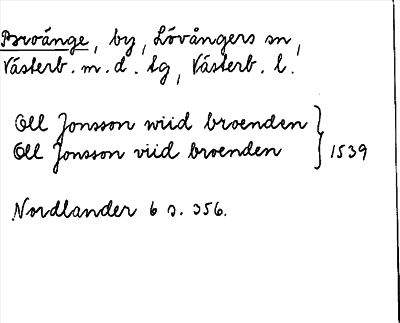 Broänge, by, Lövångers sn,
Västerb. m. d. tg, Västerb. l.
Oll Jonsson wiid broenden
Oll Jonsson viid broenden } 1539
Nordlander 6 s. 356.